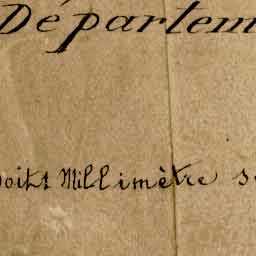 Départem
oits Millimètre s